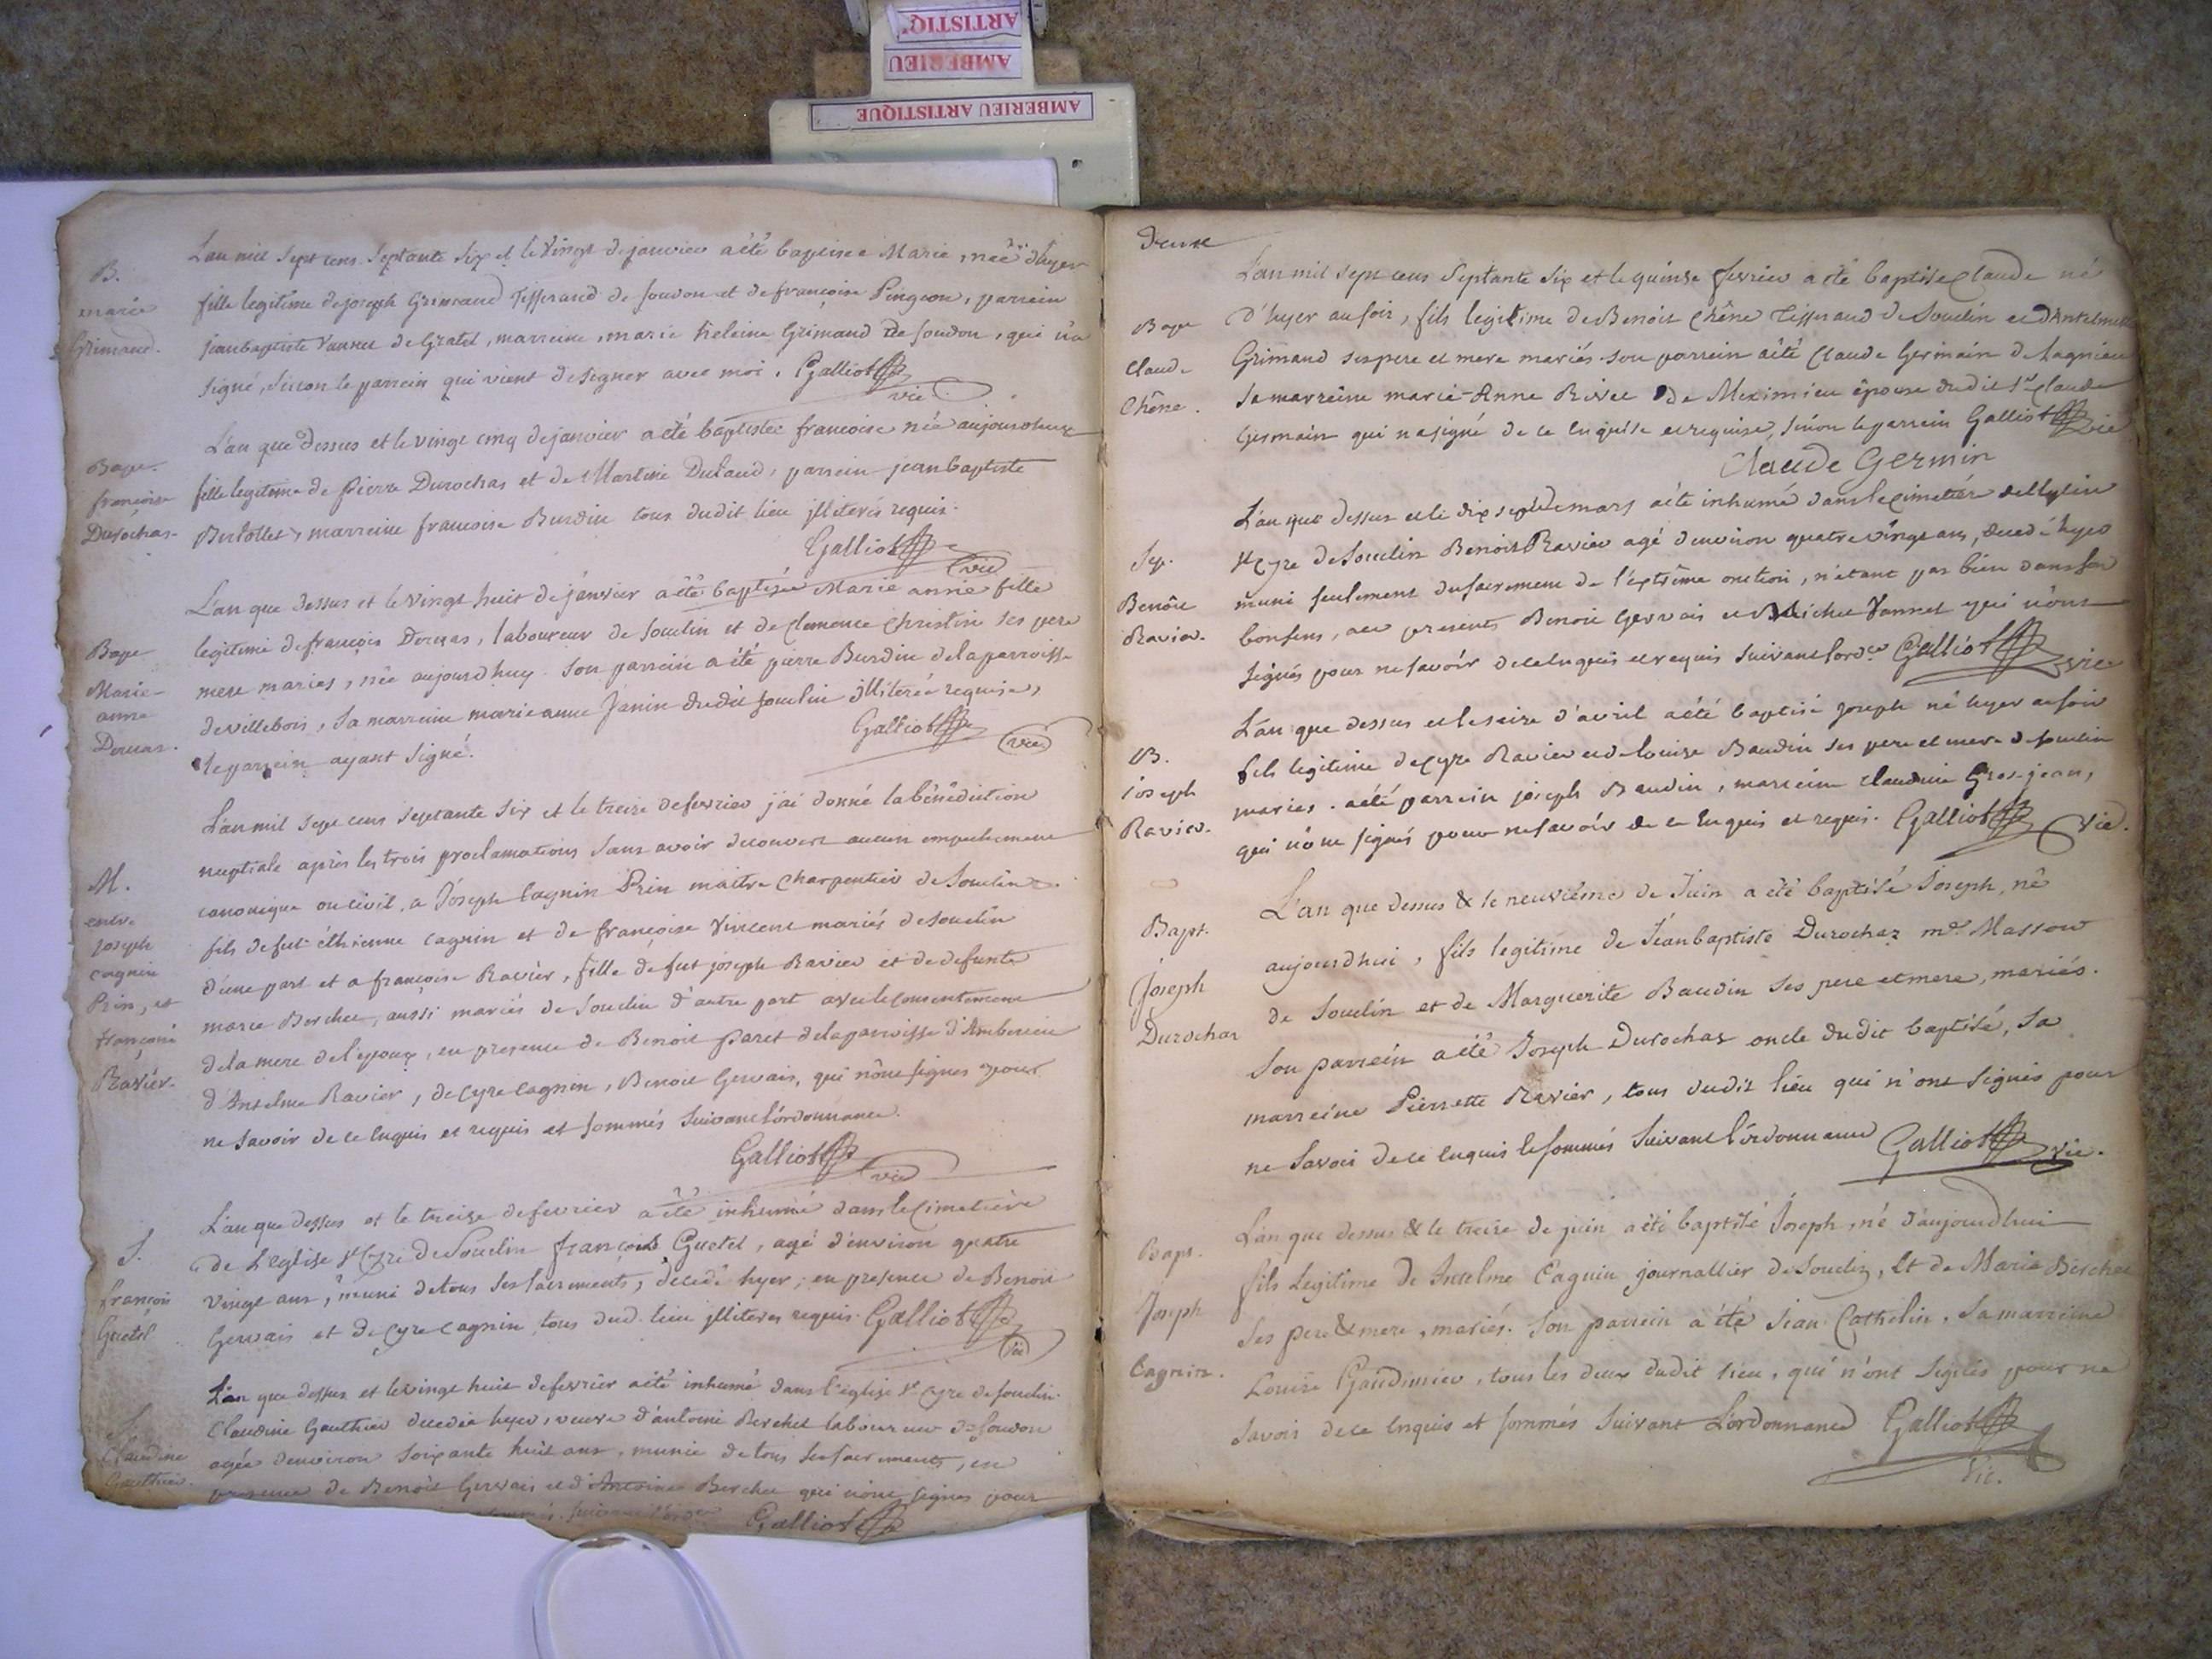 ARTISTIQ'
AMBERIEU
AMBERIEU ARTISTIQUE
L'an mil sept cens septante six et le vingt de janvier a été baptisée Marie, née d'hyer
B.
marie
Grimand.
fille legitime de joseph Grimand Tisserand de soudon et de françoise Pingeon, parrein
jean baptiste Vannet de Gratet, marreine, marie heleine Grimand de soudon, qui n'a
signé, sinon le parrein qui vient de signer avec moi. Galliot
vic
L'an que dessus et le vingt cinq de janvier a été baptisée francoise née aujourdhuy
Bapt.
francoise
Durochas.
fille legitime de pierre Durochas et de Martine Dutaud, parrein jean baptiste
Bertollet, marreine francoise Burdin tous dudit lieu illiterés requis.
Galliot
vic
L'an que dessus et le vingt huit de janvier a été baptisée Marie anne fille
Bapt.
Marie-
anne
legitime de françois Dorvas, laboureur de souclin et de clemence christin ses pere
mere mariés, née aujourdhuy. son parrein a été pierre Burdin de la parroisse
de villebois, sa marreine marie anne Janin dudit souclin illiterée requise,
le parrein ayant signé.
Galliot
vic
L'an mil sept cens septante six et le treize de fevrier j'ai donné la bénédiction
M.
entre
joseph
cagnin
Prin, et
françoise
Ravier.
nuptiale après les trois proclamations sans avoir decouvert aucun empechement
canonique ou civil, a Joseph Cagnin Prin maitre charpentier de Souclin
fils de feu éthienne cagnin et de françoise Vincent mariés de souclin
d'une part et a françoise Ravier, fille de feu joseph Ravier et de defunte
marie Berchet, aussi mariés de souclin d'autre part avec le consentement
de la mere de l'epoux, en presence de Benoit paret de la parroisse d'Amberieu
d'Anselme Ravier, de cyre cagnin, Benoit Gervais, qui n'ont signés pour
ne savoir de ce enquis et requis et sommés suivant l'ordonnance.
Galliot
vic
L'an que dessus et le treize de fevrier a été inhumé dans le cimetière
S.
françois
Guetet
de l'eglise St Cyre de Souclin françois Guetet, agé d'environ quatre
vingt ans, muni de tous ses sacrements, decedé hyer; en presence de Benoit
Gervais et de Cyre cagnin tous dud. lieu illiteres requis. Galliot
vic
L'an que dessus et le vingt huit de fevrier a été inhumé dans l'église St cyre de souclin
S.
Claudine
Gauthier.
Claudine Gauthier decedée hyer, veuve d'antoine Berchet laboureur de soudon
agée d'environ soixante huit ans, munie de tous ses sacrements, en
presence de Benoit Gervais et d'Antoine Berchet qui n'ont signés pour
Galliot
Deux
L'an mil sept cens septante six et le quinze fevrier a été baptisé Claude né
Bapt
claude
Chêne.
d'hyer au soir, fils legitime de Benoit Chêne Tisserand de Souclin et d'Anthelmette
Grimand ses pere et mere mariés. son parrein a été Claude Germain de Lagnieu
sa marreine marie-Anne Rivet de Meximieu épouse dudit Sr Claude
Germain qui n'a signé de ce enquise et requise, sinon le parrein Galliot vic
Claude Germin
L'an que dessus et le dix sept de mars a été inhumé dans le cimetiére de l'Eglise
Sep.
Benôit
Ravier.
St Cyre de Souclin Benoit Ravier agé d'environ quatre vingt ans, decedé hyer
muni seulement du sacrement de l'extrême onction, n'etant pas bien dans son
bon sens, presents Benoit Gervais et Michel Vannet qui n'ont
signés pour ne savoir de ce enquis et requis suivant l'ordce Galliot vic
L'an que dessus et le seize d'avril a été baptisé joseph né hyer au soir
B.
joseph
Ravier.
fils legitime de cyre Ravier et de louise Baudin ses pere et mere de souclin
mariés. a été parrein joseph Baudin, marreine claudine Gros-jean,
qui n'ont signés pour ne savoir de ce enquis et requis. Galliot vic.
L'an que dessus & le neuvième de Juin a été baptisé Joseph, né
Bapt.
Joseph
Durochas
aujourdhui, fils legitime de Jean baptiste Durochaz md. Massow
de Souclin et de Marguerite Baudin ses pere et mere, mariés.
Son parrein a été Joseph Durochas oncle dudit baptisé, sa
marreine Pierrette Ravier, tous dudit lieu qui n'ont signés pour
ne savoir de ce enquis le sommés suivant l'ordonnance Galliot vic.
L'an que dessus & le treize de juin a été baptisé Joseph, né d'aujourdhui
Bapt.
Joseph
Cagnin.
fils legitime de Antelme Cagnin journallier de Souclin, et de Marie Berchet
ses pere & mere, mariés. Son parrein a été Jean Cathelin, sa marreine
Louise Gaudimier, tous les deux dudit lieu, qui n'ont signés pour ne
savoir de ce enquis et sommés suivant L'ordonnance Galliot
Vic.